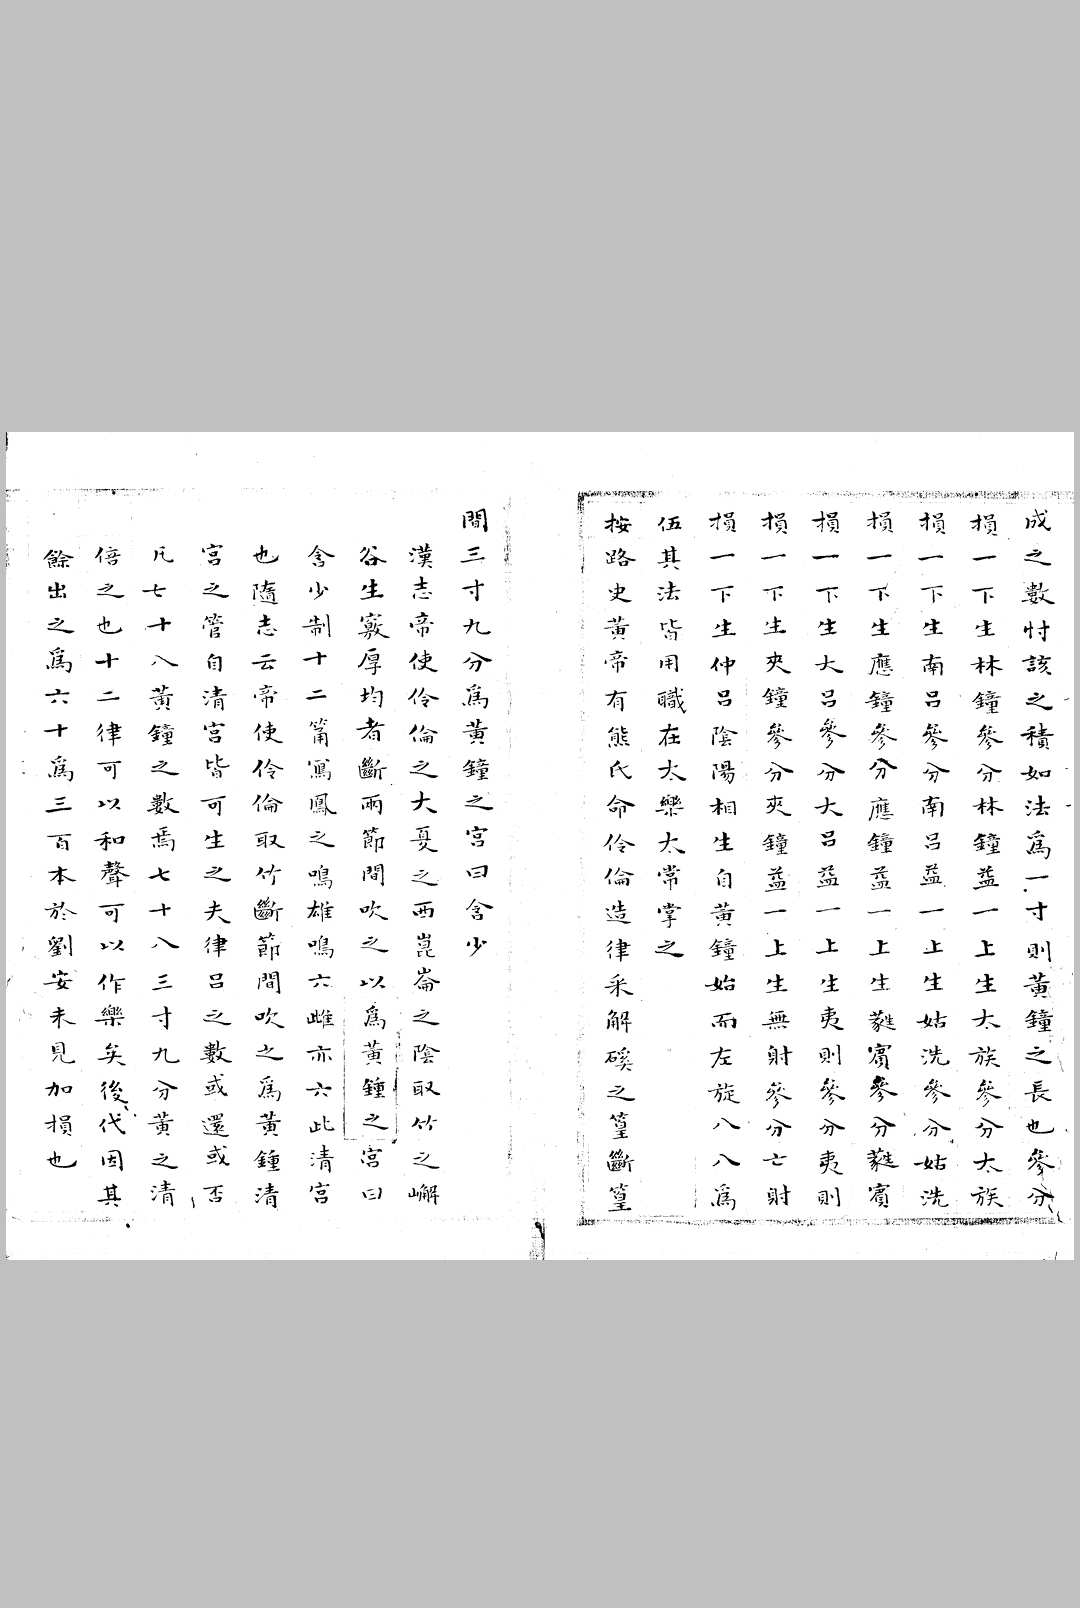 成之數忖該之積如法爲一寸則黃鐘之長也參分
損一下生林鐘參分林鐘益一上生太族參分太族
損一下生南呂參分南呂益一上生姑洗參分姑洗
損一下生應鐘參分應鐘益一上生蕤賓參分蕤賓
損一下生大呂參分大呂益一上生夷則參分夷則
損一下生夾鐘參分夾鐘益一上生無射參分亡射
損一下生仲呂陰陽相生自黃鐘始而左旋八八爲
伍其法皆用職在太樂太常掌之
按路史黃帝有熊氏命伶倫造律采解磎之篁斷篁
間三寸九分爲黃鐘之宮曰含少
漢志帝使伶倫之大夏之西崑崙之陰取竹之嶰
谷生竅厚均者斷兩節間吹之以爲黃鍾之宮曰
含少制十二筩寫鳳之鳴雄鳴六雌亦六此清宮
也隨志云帝使伶倫取竹斷節間吹之爲黃鍾清
宮之管自清宮皆可生之夫律呂之數或還或否
凡七十八黃鐘之數焉七十八三寸九分黃之清
倍之也十二律可以和聲可以作樂矣後代因其
餘出之爲六十爲三百本於劉安未見加損也